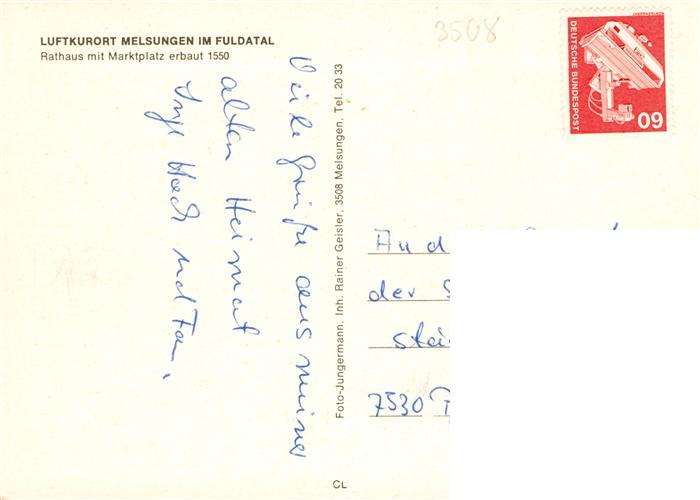 LUFTKURORT MELSUNGEN IM FULDATAL
Rathaus mit Marktplatz erbaut 1550
3508
DEUTSCHE BUNDESPOST
60
Viele Grüße aus meiner
alten Heimat
Inge und Fam.
Foto-Jungermann. Inh. Rainer Geisler, 3508 Melsungen, Tel. 20 33
An d
der S
Stei
7530
CL